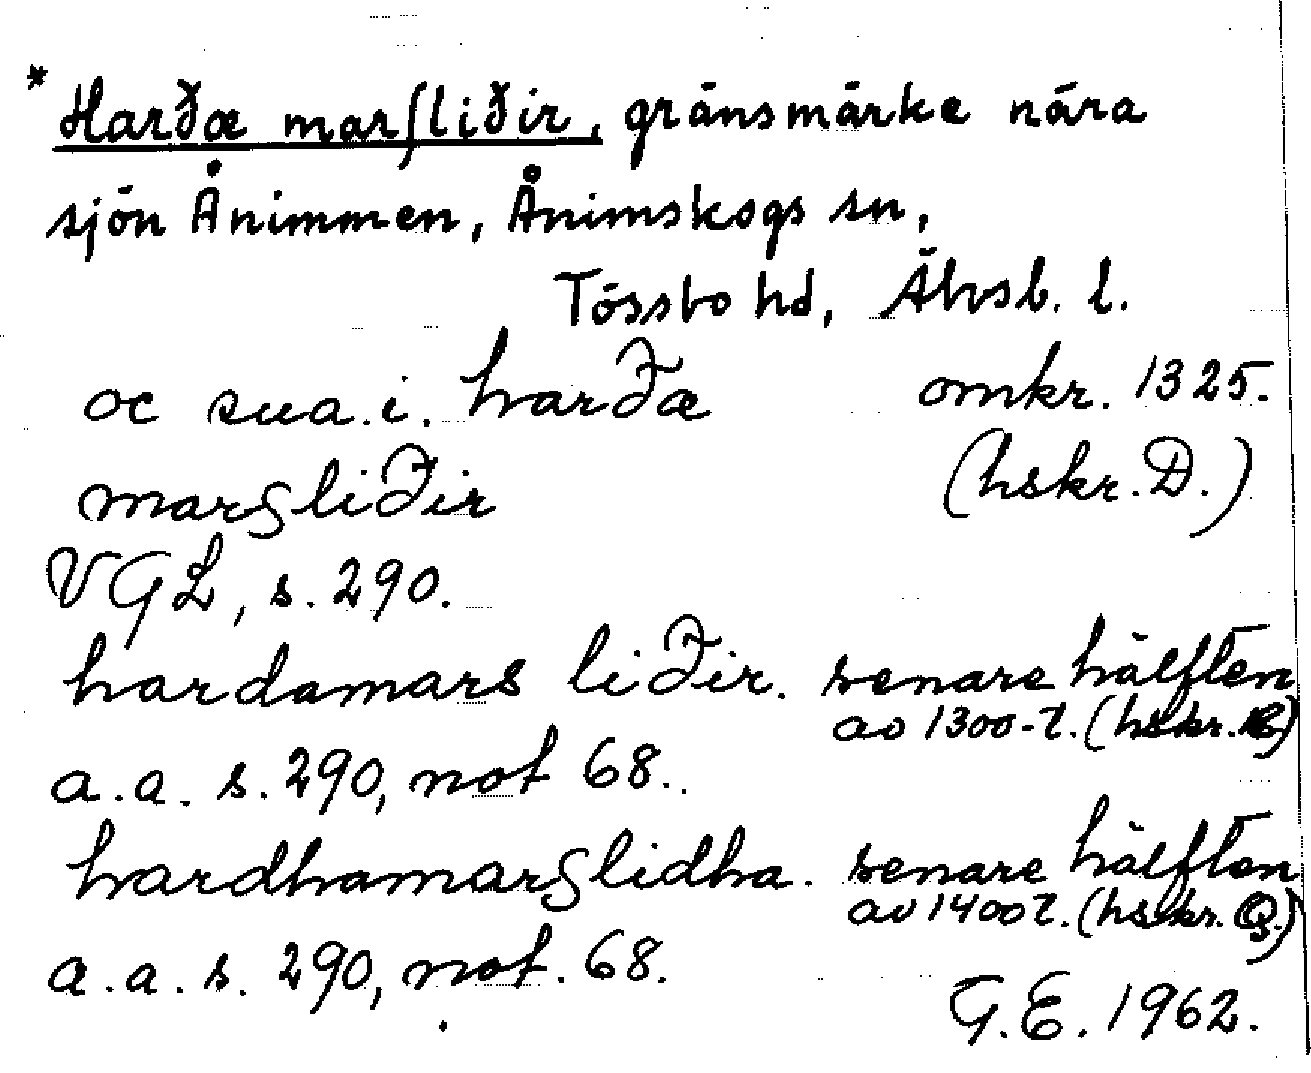 * Harðæ marſliðir, gränsmärke nära
sjön Ånimmen, Ånimskogs sn,
Tössbo hd, Älvsb. l.
oc sua. i. harðæ omkr. 1325.
marsliðir (hskr. D.)
VGL, s. 290.
hardamars liðir. senare hälften
av 1300-t. (hskr. B)
a.a. s. 290, not 68.
hardhamarslidha. senare hälften
av 1400 t. (hskr. Q.)
a.a. s. 290, not. 68.
G.E. 1962.